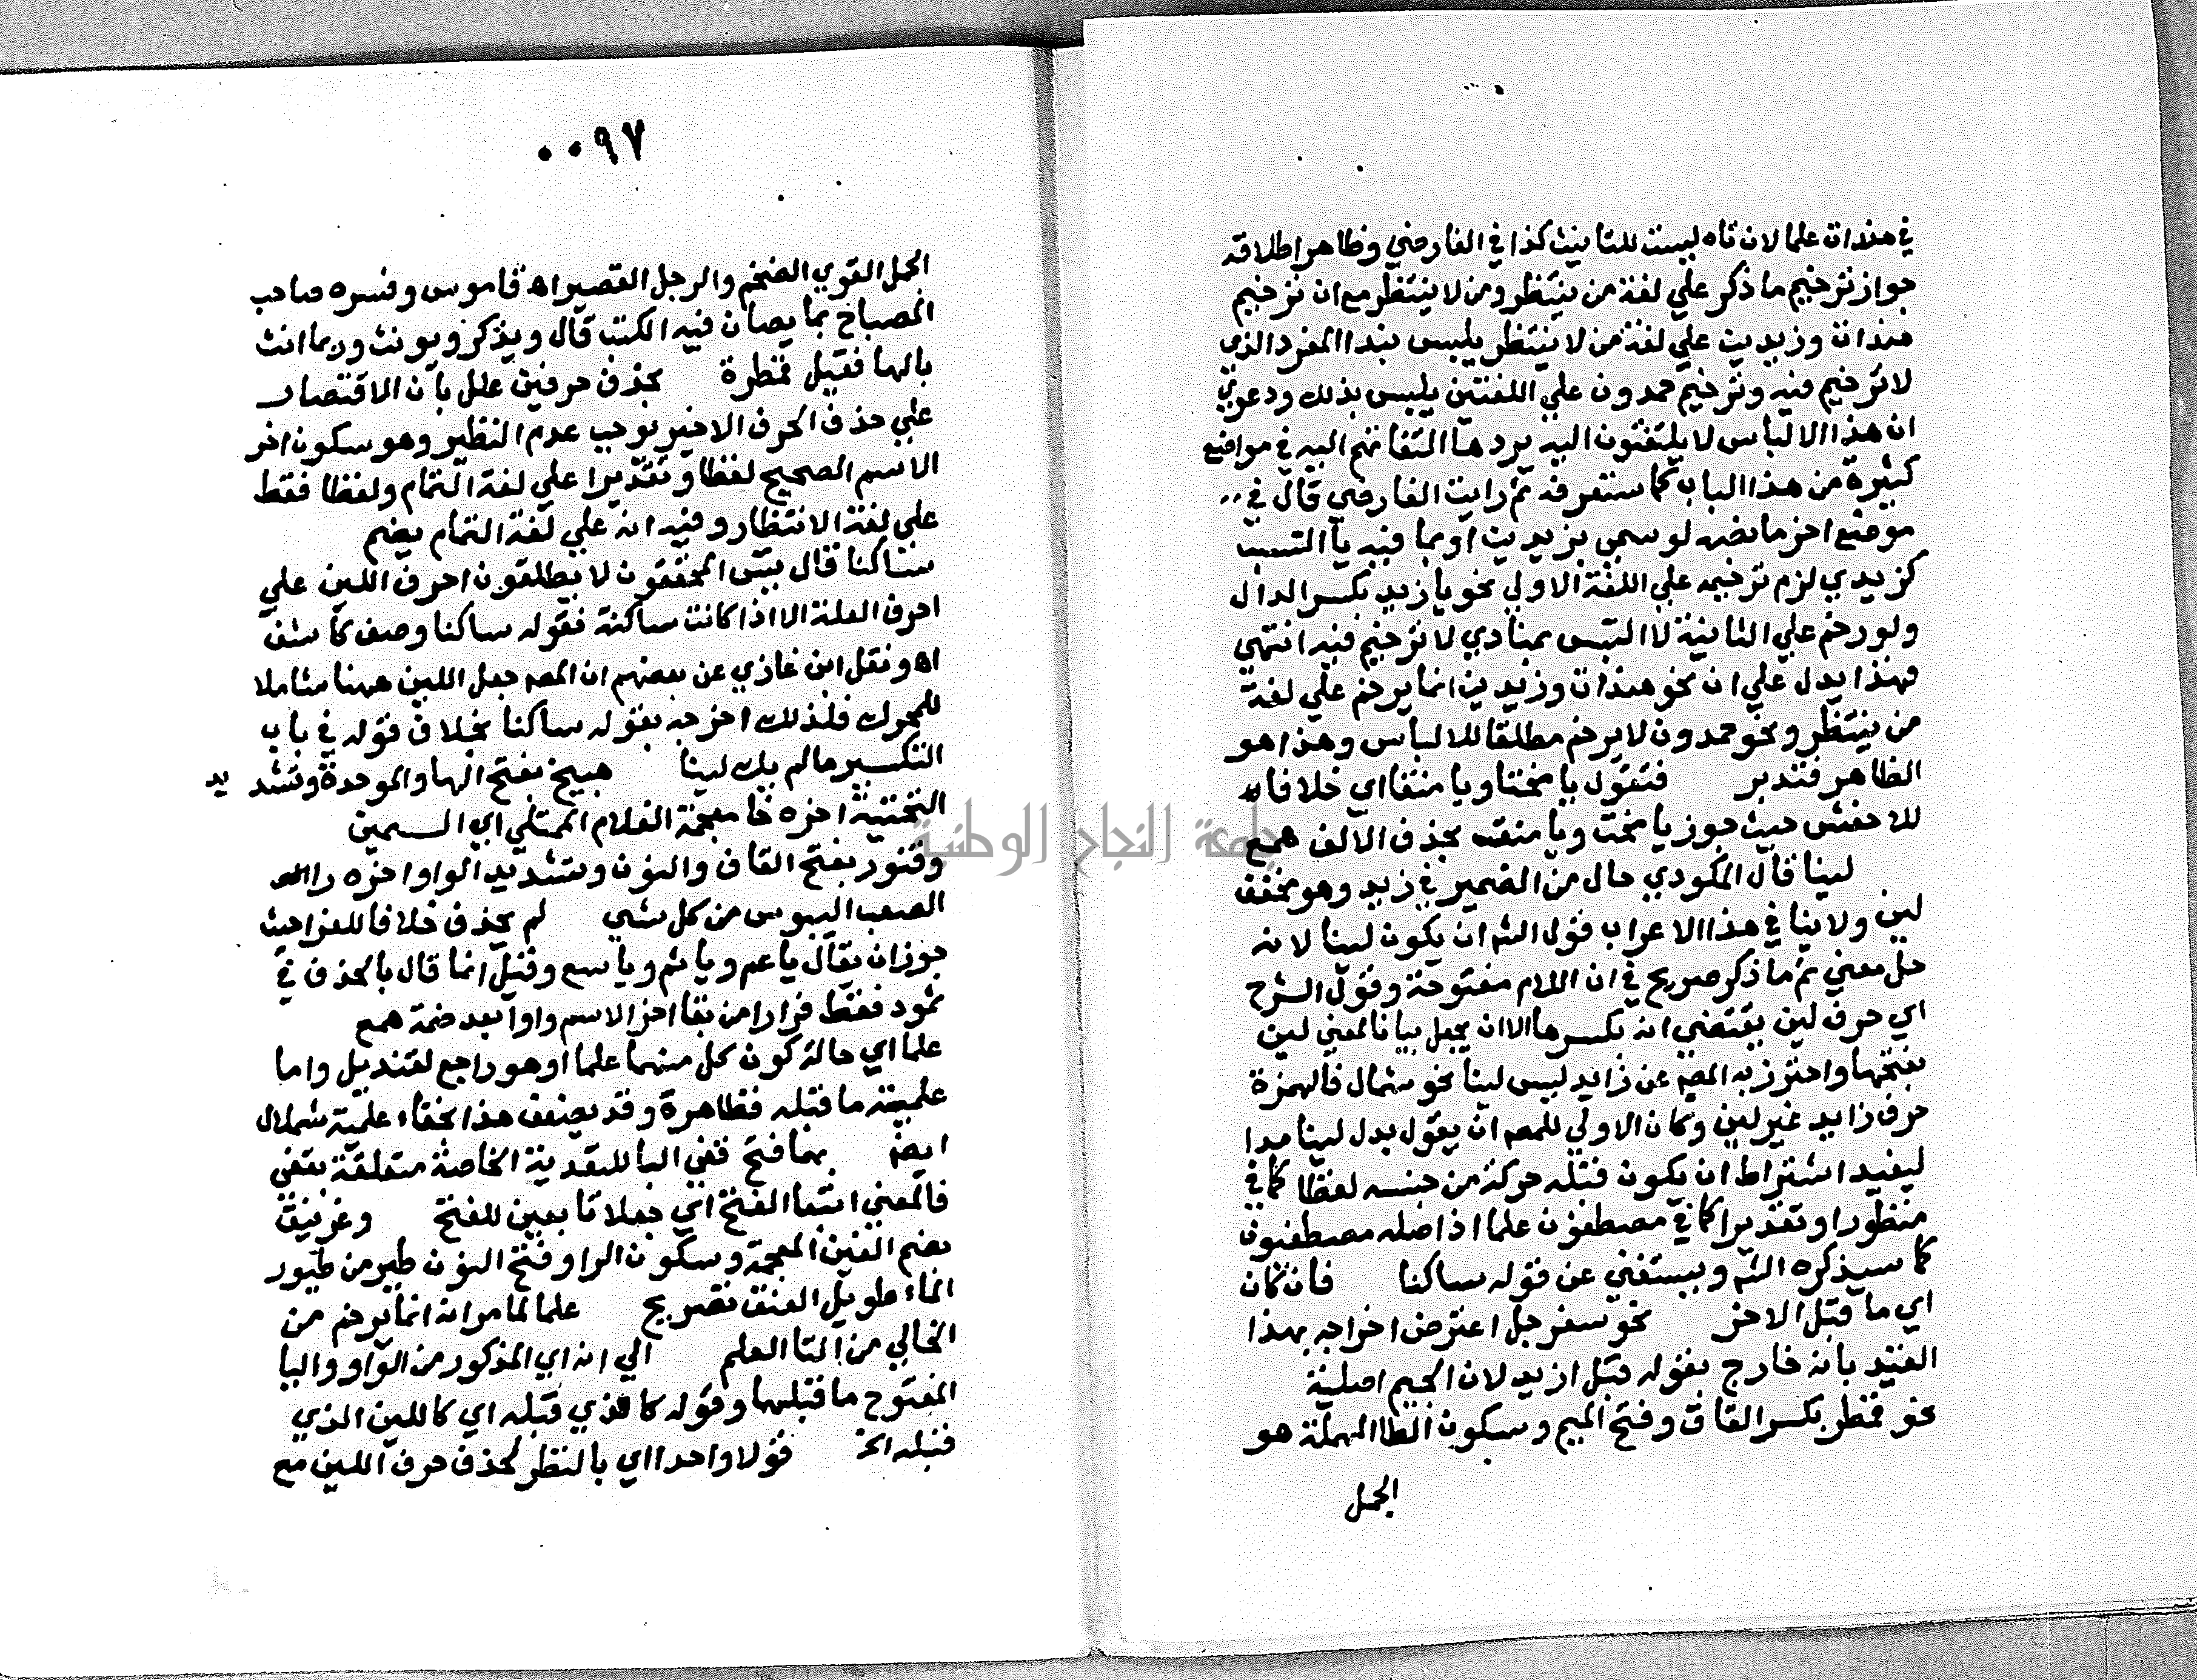 في هندات علما لان تاه ليست للتانيث كذا في الفارضي وظاهر اطلاقه
جواز ترخيم ما ذكر علي لغة من ينتظر ومن لا ينتظر مع ان ترخيم
هندات وزيديت علي لغة من لا ينتظر يلبس بندا المفرد الذي
لا ترخيم فيه وترخيم حمدون علي اللغتين يلبس بذلك ودعوي
ان هذا الالباس لا يلتفتون اليه يردها التفاتهم اليه في مواضع
كثيرة من هذا الباب كما ستعرفه ثم رايت الفارضي قال في
موضع اخر ما نصه لو سمي بزيديت او بما فيه يا النسب
كزيدي لزم ترخيمه علي اللغة الاولي نحو يا زيد بكسر الدال
ولو رخم علي الثانية لا التبس بمنادي لا ترخيم فيه انتهي
فهذا يدل علي ان نحو هندات وزيديت انما يرخم علي لغة
من ينتظر ونحو حمدون لا يرخم مطلقا للالباس وهذا هو
الظاهر فتدبر فتقول يا مختا ويا منقا اي خلافا
للاخفش حيث جوز يا مخت ويا منقه بحذف الالف همع
لينا قال المكودي حال من الضمير في زيد وهو مخفف
لين ولا ينا في هذا الاعراب قول الشم ان يكون لينا لانه
حل معني ثم ما ذكر صريح في ان اللام مفتوحة وقول الشرح
اي حرف لين يقتضي انه بكسرها الا ان يجعل بيانا لمعني لين
بفتحها واحترز به المصم عن زايد ليس لينا نحو شمال فالهمزة
حرف زايد غير لين وكان الاولي للمصم ان يقول بدل لينا مدا
ليفيد اشتراط ان يكون قبله حركة من جنسه لفظا كما في
منظور او تقديرا كما في مصطفون علما اذ اصله مصطفيون
كما سيذكره الشم ويستغني عن قوله ساكنا فان كان
اي ما قبل الاخر نحو سفرجل اعترض اخراجه بهذا
القيد بانه خارج بقوله قبل ان زيد لان الجيم اصلية
نحو قمطر بكسر القاف وفتح الميم وسكون الطا المهملة هو
الجمل
٠٠٩٧
الجمل القوي الضخم والرجل القصير اه قاموس وفسره صاحب
المصباح بما يصان فيه الكتب قال ويذكر ويونث وربما انث
بالها فقيل قمطرة بحذف حرفين علل بان الاقتصار
علي حذف الحرف الاخير يوجب عدم النظير وهو سكون اخر
الاسم الصحيح لفظا وتقديرا علي لغة التمام ولفظا فقط
علي لغة الانتظار وفيه انه علي لغة التمام يضم
ساكنا قال يس المحققون لا يطلقون احرف اللين علي
احرف العلة الا اذا كانت ساكنة فقوله ساكنا وصف كاشف
اه ونقل ابن غازي عن بعضهم ان المصم جعل اللين ههنا شاملا
للمحرك فلذلك اخرجه بقوله ساكنا بخلاف قوله في باب
التكسير ما لم يك لينا هبيخ بفتح الها والموحدة وتشديد
التحتية اخره خا معجمة الغلام الممتلي اي السمين
وقنور بفتح القاف والنون وتشديد الواو اخره را
الصعب اليبوس من كل شي لم يحذف خلافا للفرا حيث
جوز ان يقال يا عم ويا ثم ويا سع وقيل انما قال بالحذف في
ثمود فقط فرارا من بقا اخر الاسم واوا بعد ضمة همع
علما اي حالة كون كل منهما علما او هو راجع لقنديل واما
علمية ما قبله فظاهرة وقد يضعف هذا بخفاء علمية شملال
ايضم بهما فتح قفي البا للتعدية الخاصة متعلقة بقفي
فالمعني اتبعا الفتح اي جعلا تابعين للفتح وغرنيق
بضم الغين المعجمة وسكون الرا وفتح النون طير من طيور
الماء طويل العنق تصريح علما لما مر انه انما يرخم من
الخالي من التا العلم الي انه اي المذكور من الواو واليا
المفتوح ما قبلها وقوله كالذي قبله اي كاللين الذي
قبله الخ قولا واحدا اي بالنظر لحذف حرف اللين مع
جامعة النجاح الوطنية